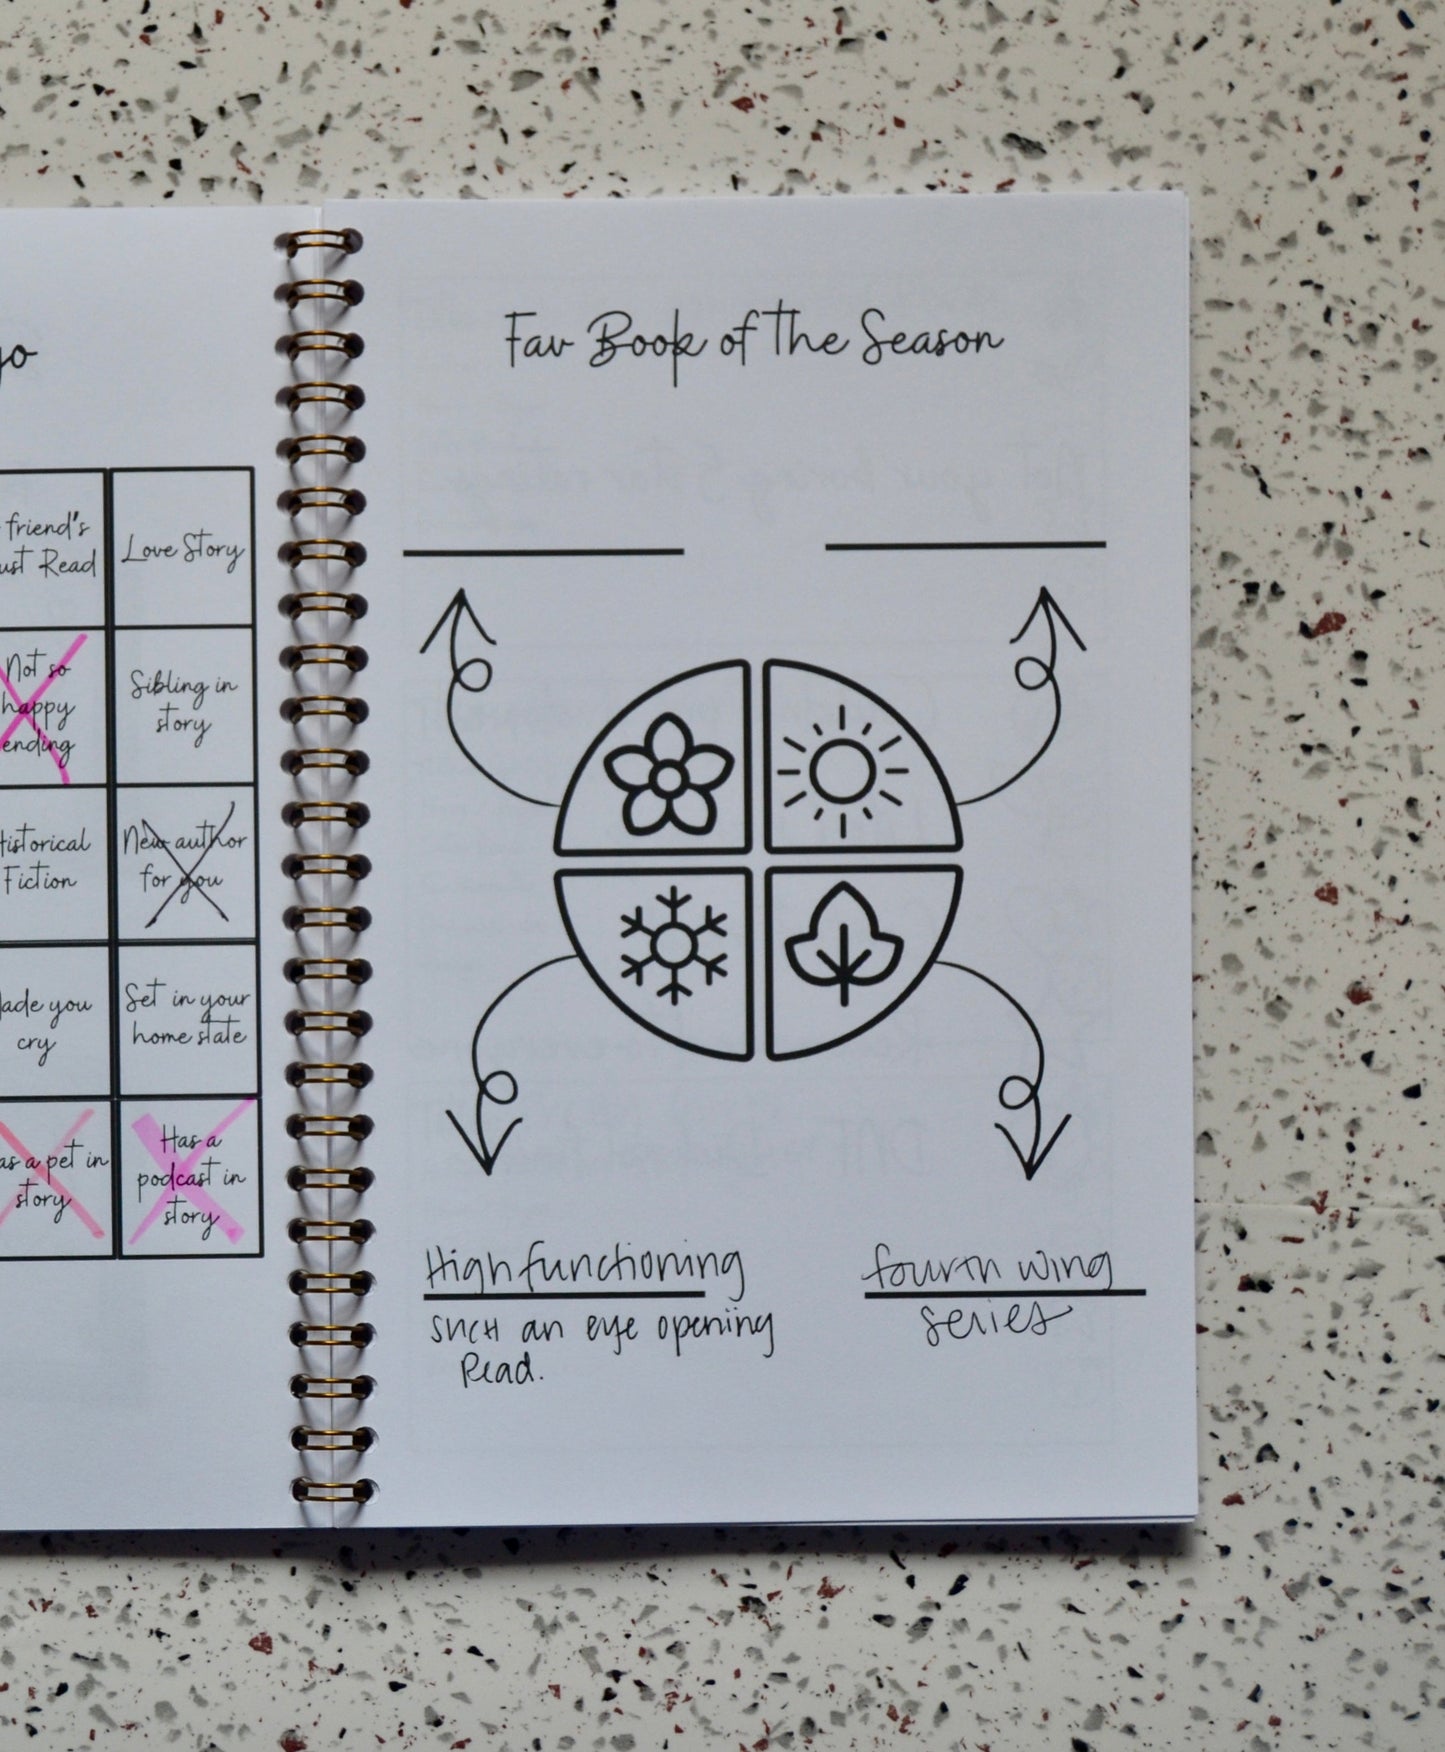 go
friend's
ust Read
Love Story
Not so
happy
ending
Sibling in
story
Historical
Fiction
New author
for you
ade you
cry
Set in your
home state
as a pet in
story
Has a
podcast in
story
Fav Book of the Season
High functioning
such an eye opening
Read.
fourth wing
series